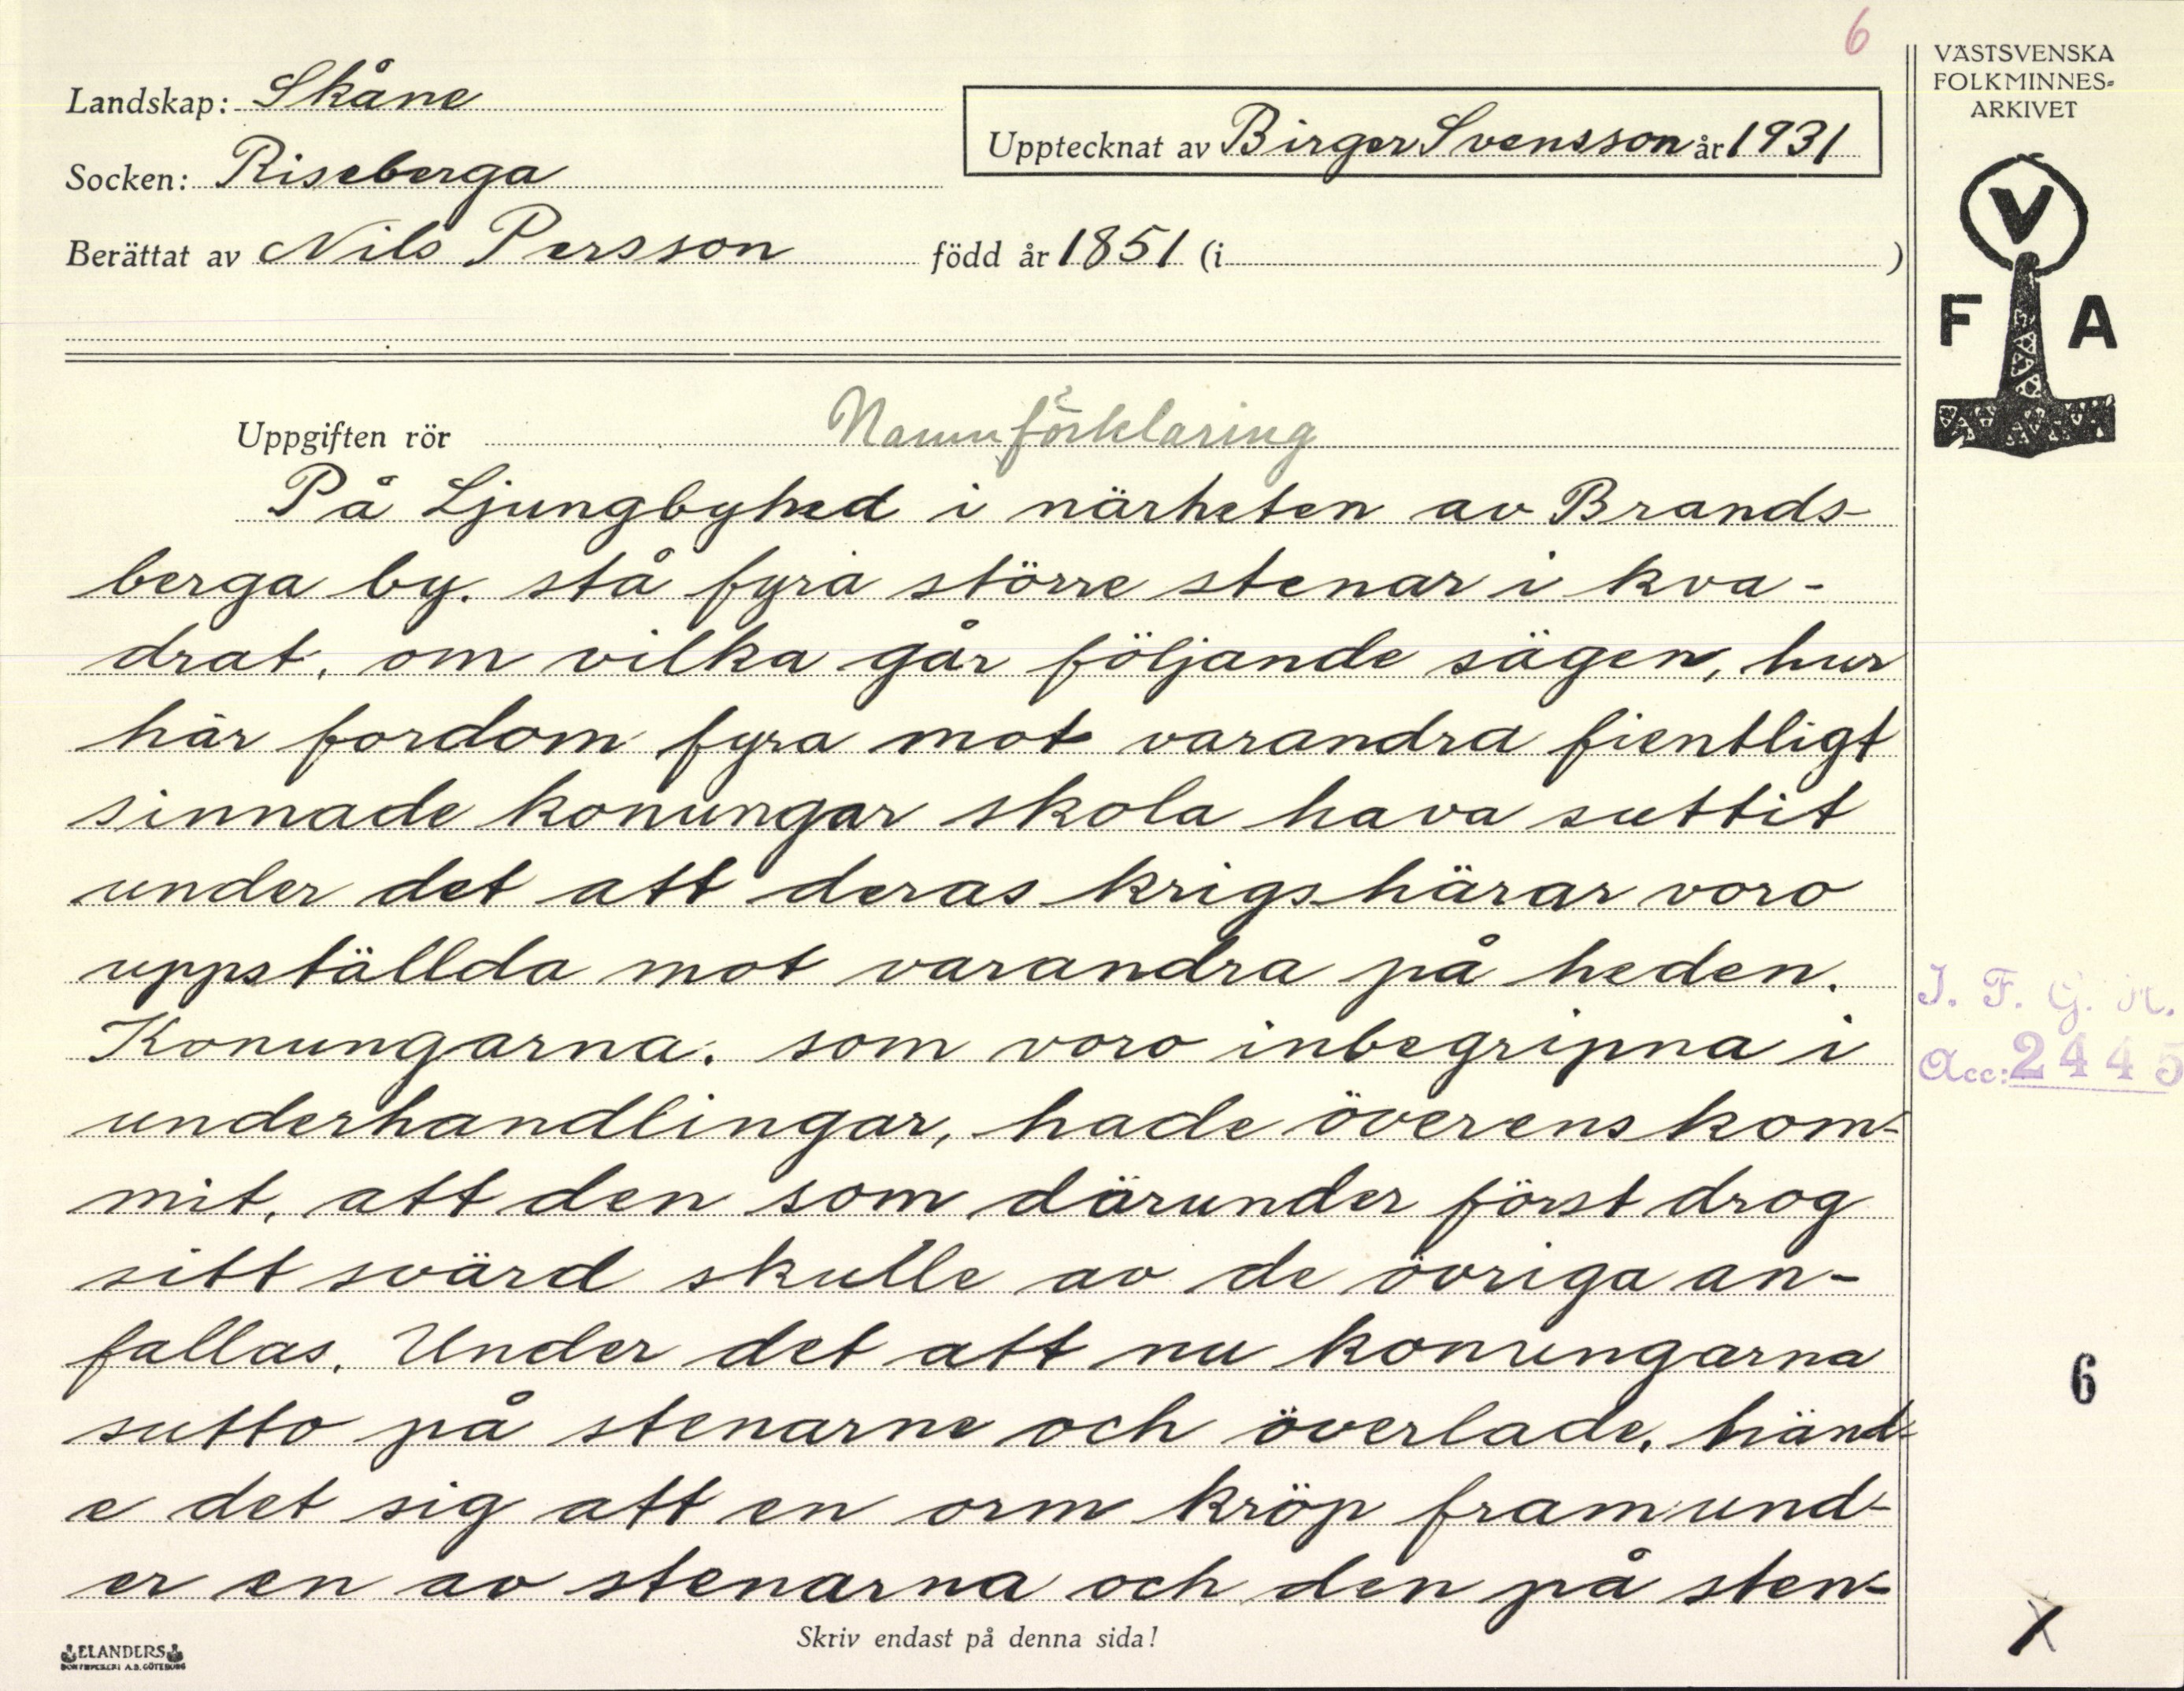 6
VÄSTSVENSKA
FOLKMINNES-
ARKIVET
Landskap: Skåne
Upptecknat av Birger Svensson år 1931
Socken: Riseberga
Berättat av Nils Persson född år 1851 (i )
V
F A
Uppgiften rör Namnförklaring
På Ljungbyhed i närheten av Brands-
berga by. stå fyra större stenar i kva-
drat, om vilka går följande sägen, hur
här fordom fyra mot varandra fientligt
sinnade konungar skola hava suttit
under det att deras krigshärar voro
uppställda mot varandra på heden.
Konungarna. som voro inbegripna i
underhandlingar, hade överenskom-
mit, att den som därunder först drog
sitt svärd skulle av de övriga an-
fallas. Under det att nu konungarna
sutto på stenarne och överlade, händ-
e det sig att en orm kröp fram und-
er en av stenarna och den på sten-
I. F. G. H.
Acc: 2445
6
1
Skriv endast på denna sida!
ELANDERS
BOKTRYCKERI A.B. GÖTEBORG